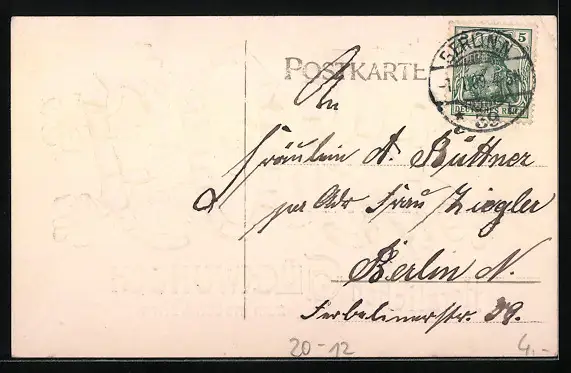 POSTKARTE
BERLIN N
5
DEUTSCHES REICH
* 39
c
An
Fräulein A. Büttner
per Adr Frau Ziegler
Berlin N.
Ferbelinerstr. 39.
20-12
4.-